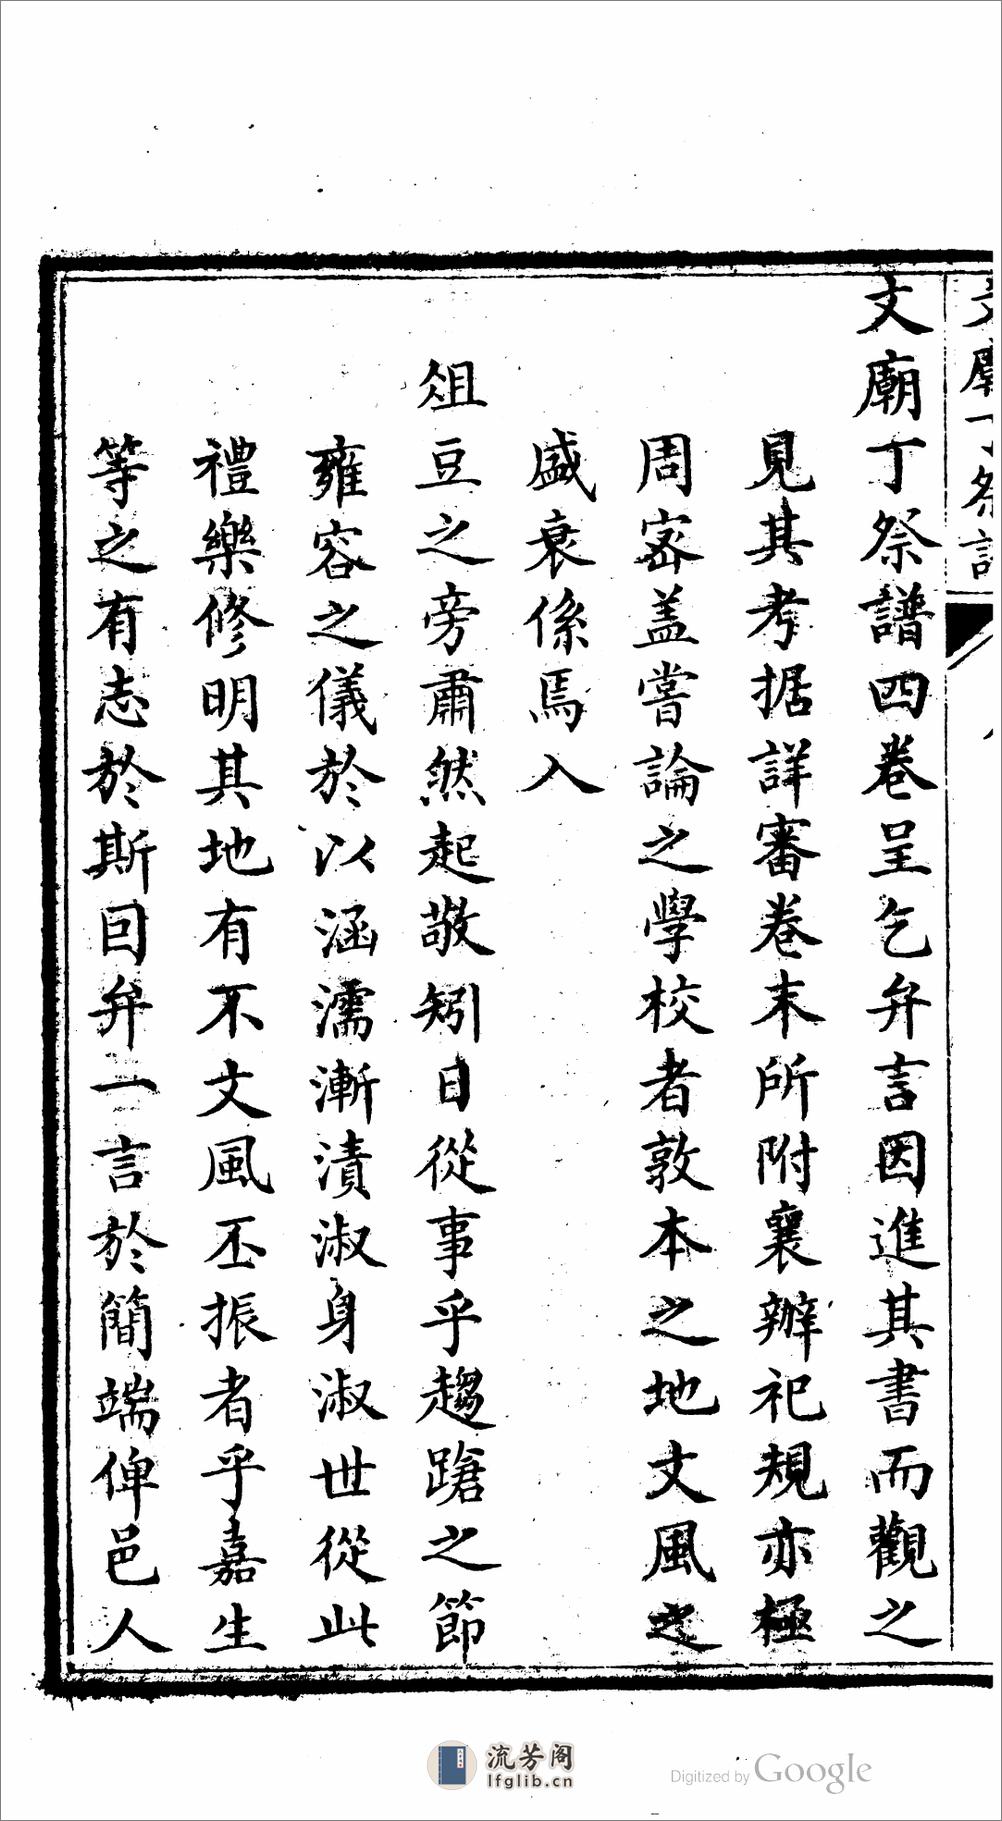 文廟丁祭譜
文廟丁祭譜四卷呈乞弁言因進其書而觀之
見其考据詳審卷末所附襄辦祀規亦極
周密盖嘗論之學校者敦本之地文風之
盛衰係焉入
俎豆之旁肅然起敬矧日從事乎趨蹌之節
雍容之儀於以涵濡漸漬淑身淑世從此
禮樂修明其地有不文風丕振者乎嘉生
等之有志於斯回弁一言於簡端俾邑人
流芳阁
lfglib.cn
Digitized by Google